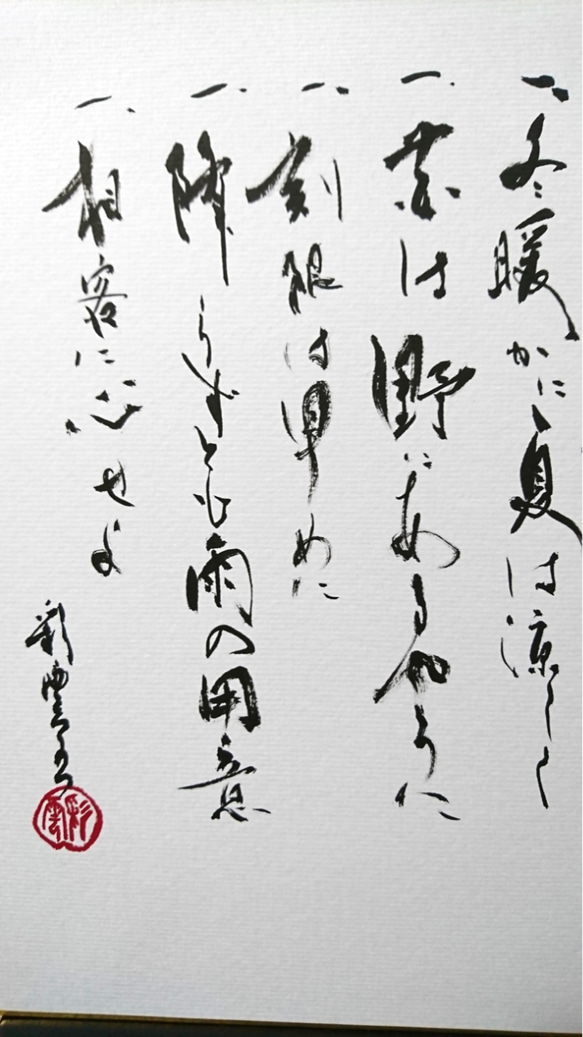 一、冬暖かに夏は涼しく
一、花は野にあるやうに
一、刻限は早めに
一、降らずとも雨の用意
一、相客に心せよ
彩雲
彩雲